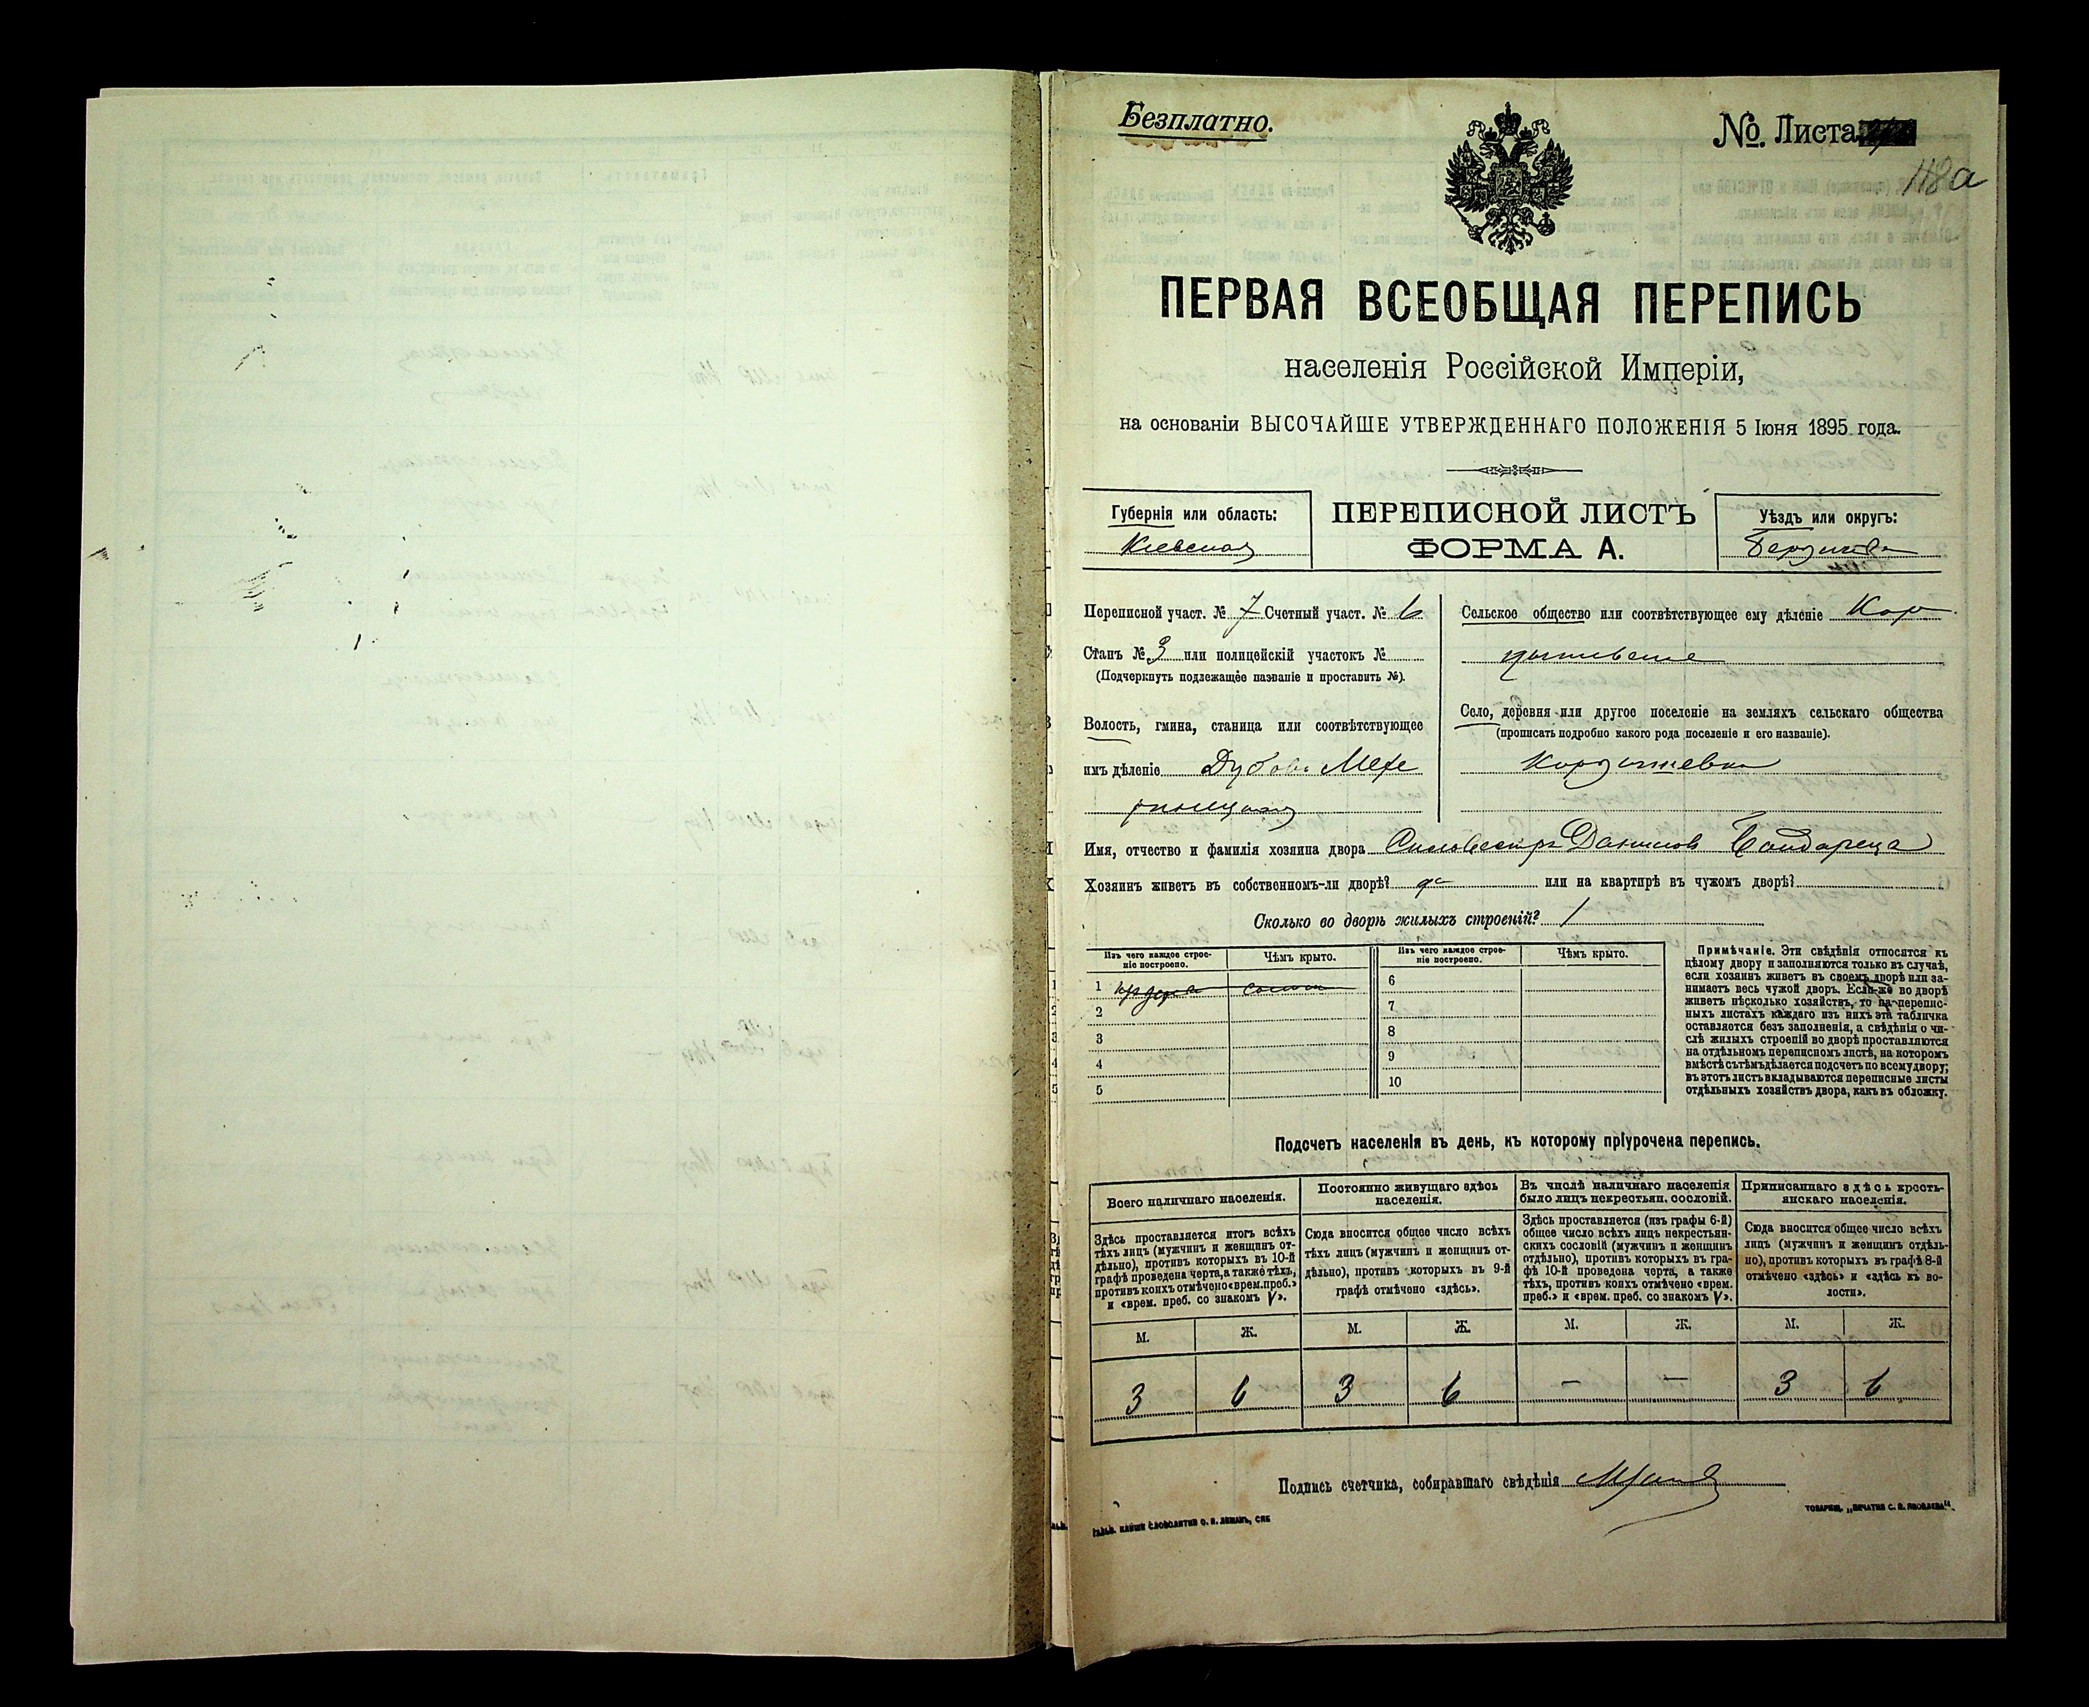 Безплатно.
№. Листа
118а
ПЕРВАЯ ВСЕОБЩАЯ ПЕРЕПИСЬ
населенія Россійской Имперіи,
на основаніи ВЫСОЧАЙШЕ УТВЕРЖДЕННАГО ПОЛОЖЕНІЯ 5 Іюня 1895 года.
Губернія или область:
Кіевская
ПЕРЕПИСНОЙ ЛИСТЪ
ФОРМА А.
Уѣздъ или округъ:
Бердичевск
Переписной участ. № 7 Счетный участ. № 6
Станъ № 3 или полицейскій участокъ №
(Подчеркнуть подлежащее названіе и проставить №).
Волость, гмина, станица или соотвѣтствующее
имъ дѣленіе Дубово Меже
ринецкая
Сельское общество или соотвѣтствующее ему дѣленіе Кор
дышевское
Село, деревня или другое поселеніе на земляхъ сельскаго общества
(прописать подробно какого рода поселеніе и его названіе).
Кордышевка
Имя, отчество и фамилія хозяина двора Сильвестръ Данилов Бондарец
Хозяинъ живетъ въ собственномъ-ли дворѣ? да или на квартирѣ въ чужомъ дворѣ?
Сколько во дворѣ жилыхъ строеній? 1
Изъ чего каждое строе-
ніе построено.
Чѣмъ крыто.
Изъ чего каждое строе-
ніе построено.
Чѣмъ крыто.
1 солом
2
3
4
5
6
7
8
9
10
Примѣчаніе. Эти свѣдѣнія относятся къ
цѣлому двору и заполняются только въ случаѣ,
если хозяинъ живетъ въ своемъ дворѣ или за-
нимаетъ весь чужой дворъ. Если-же во дворѣ
живетъ нѣсколько хозяйствъ, то на перепис-
ныхъ листахъ каждаго изъ нихъ эта табличка
оставляется безъ заполненія, а свѣдѣнія о чи-
слѣ жилыхъ строеній во дворѣ проставляются
на отдѣльномъ переписномъ листѣ, на которомъ
вмѣстѣ съ тѣмъ дѣлается подсчетъ по всему двору;
въ этотъ листъ вкладываются переписные листы
отдѣльныхъ хозяйствъ двора, какъ въ обложку.
Подсчетъ населенія въ день, къ которому пріурочена перепись.
Всего наличнаго населенія.
Постоянно живущаго здѣсь
населенія.
Въ числѣ наличнаго населенія
было лицъ некрестьян. сословій.
Приписаннаго здѣсь кресть-
янскаго населенія.
Здѣсь проставляется итогъ всѣхъ
тѣхъ лицъ (мужчинъ и женщинъ от-
дѣльно), противъ которыхъ въ 10-й
графѣ проведена черта, а также тѣхъ,
противъ коихъ отмѣчено «врем. преб.»
и «врем. преб. со знакомъ V».
Сюда вносится общее число всѣхъ
тѣхъ лицъ (мужчинъ и женщинъ от-
дѣльно), противъ которыхъ въ 9-й
графѣ отмѣчено «здѣсь».
Здѣсь проставляется (изъ графы 6-й)
общее число всѣхъ лицъ некрестьян-
скихъ сословій (мужчинъ и женщинъ
отдѣльно), противъ которыхъ въ гра-
фѣ 10-й проведена черта, а также
тѣхъ, противъ коихъ отмѣчено «врем.
преб.» и «врем. преб. со знакомъ V».
Сюда вносится общее число всѣхъ
лицъ (мужчинъ и женщинъ отдѣль-
но), противъ которыхъ въ графѣ 8-й
отмѣчено «здѣсь» и «здѣсь къ во-
лости».
М. Ж. М. Ж. М. Ж. М. Ж.
3 6 3 6 — — 3 6
Подпись счетчика, собиравшаго свѣдѣнія
ТОВАРИЩ. „ПЕЧАТНЯ С. П. ЯКОВЛЕВА".